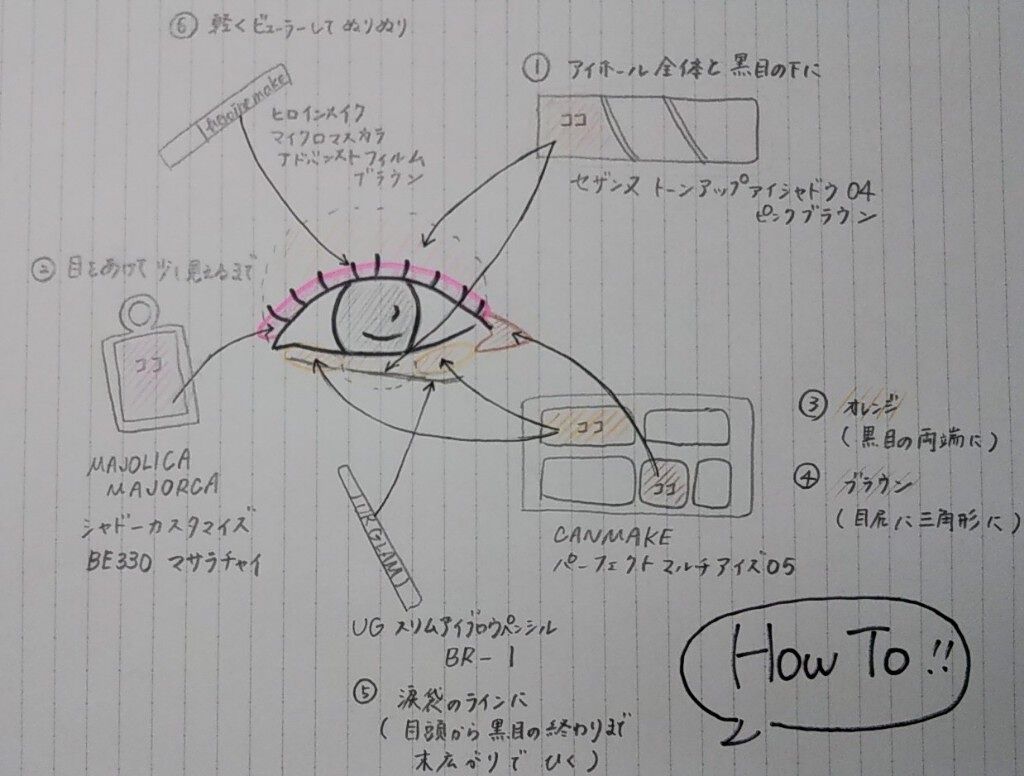 ⑥ 軽くビューラーして ぬりぬり
heroine make
ヒロインメイク
マイクロマスカラ
アドバンストフィルム
ブラウン
① アイホール全体と黒目の下に
ココ
セザンヌ トーンアップアイシャドウ 04
ピンクブラウン
② 目をあけて 少し見えるまで
ココ
MAJOLICA
MAJORCA
シャドーカスタマイズ
BE330 マサラチャイ
ココ
ココ
CANMAKE
パーフェクトマルチアイズ05
③ オレンジ
(黒目の両端に)
④ ブラウン
(目尻に三角形に)
UR GLAM
UG スリムアイブロウペンシル
BR-1
⑤ 涙袋のラインに
(目頭から黒目の終わりまで
末広がりで ひく)
How To!!